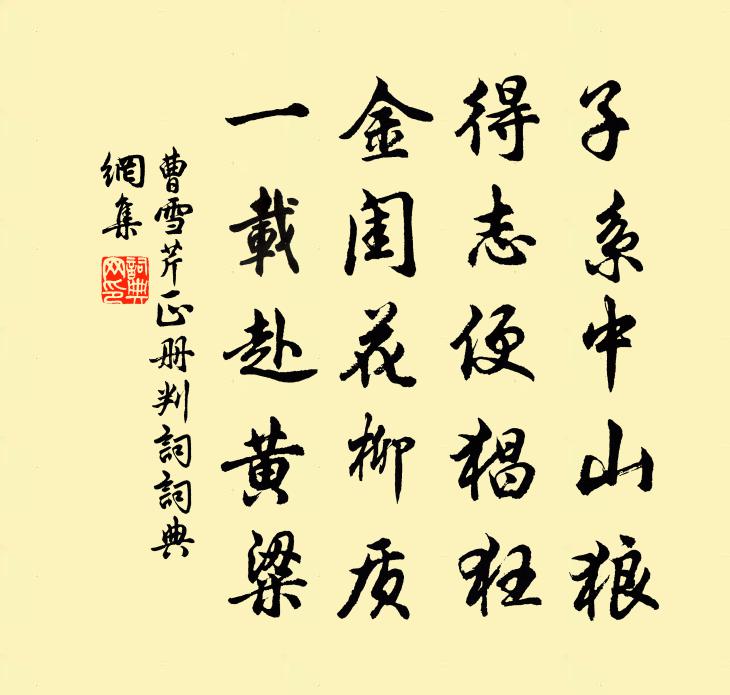 子系中山狼
得志便猖狂
金闺花柳质
一載赴黄粱
曹雪芹正册判詞詞典
網集
詞典网印